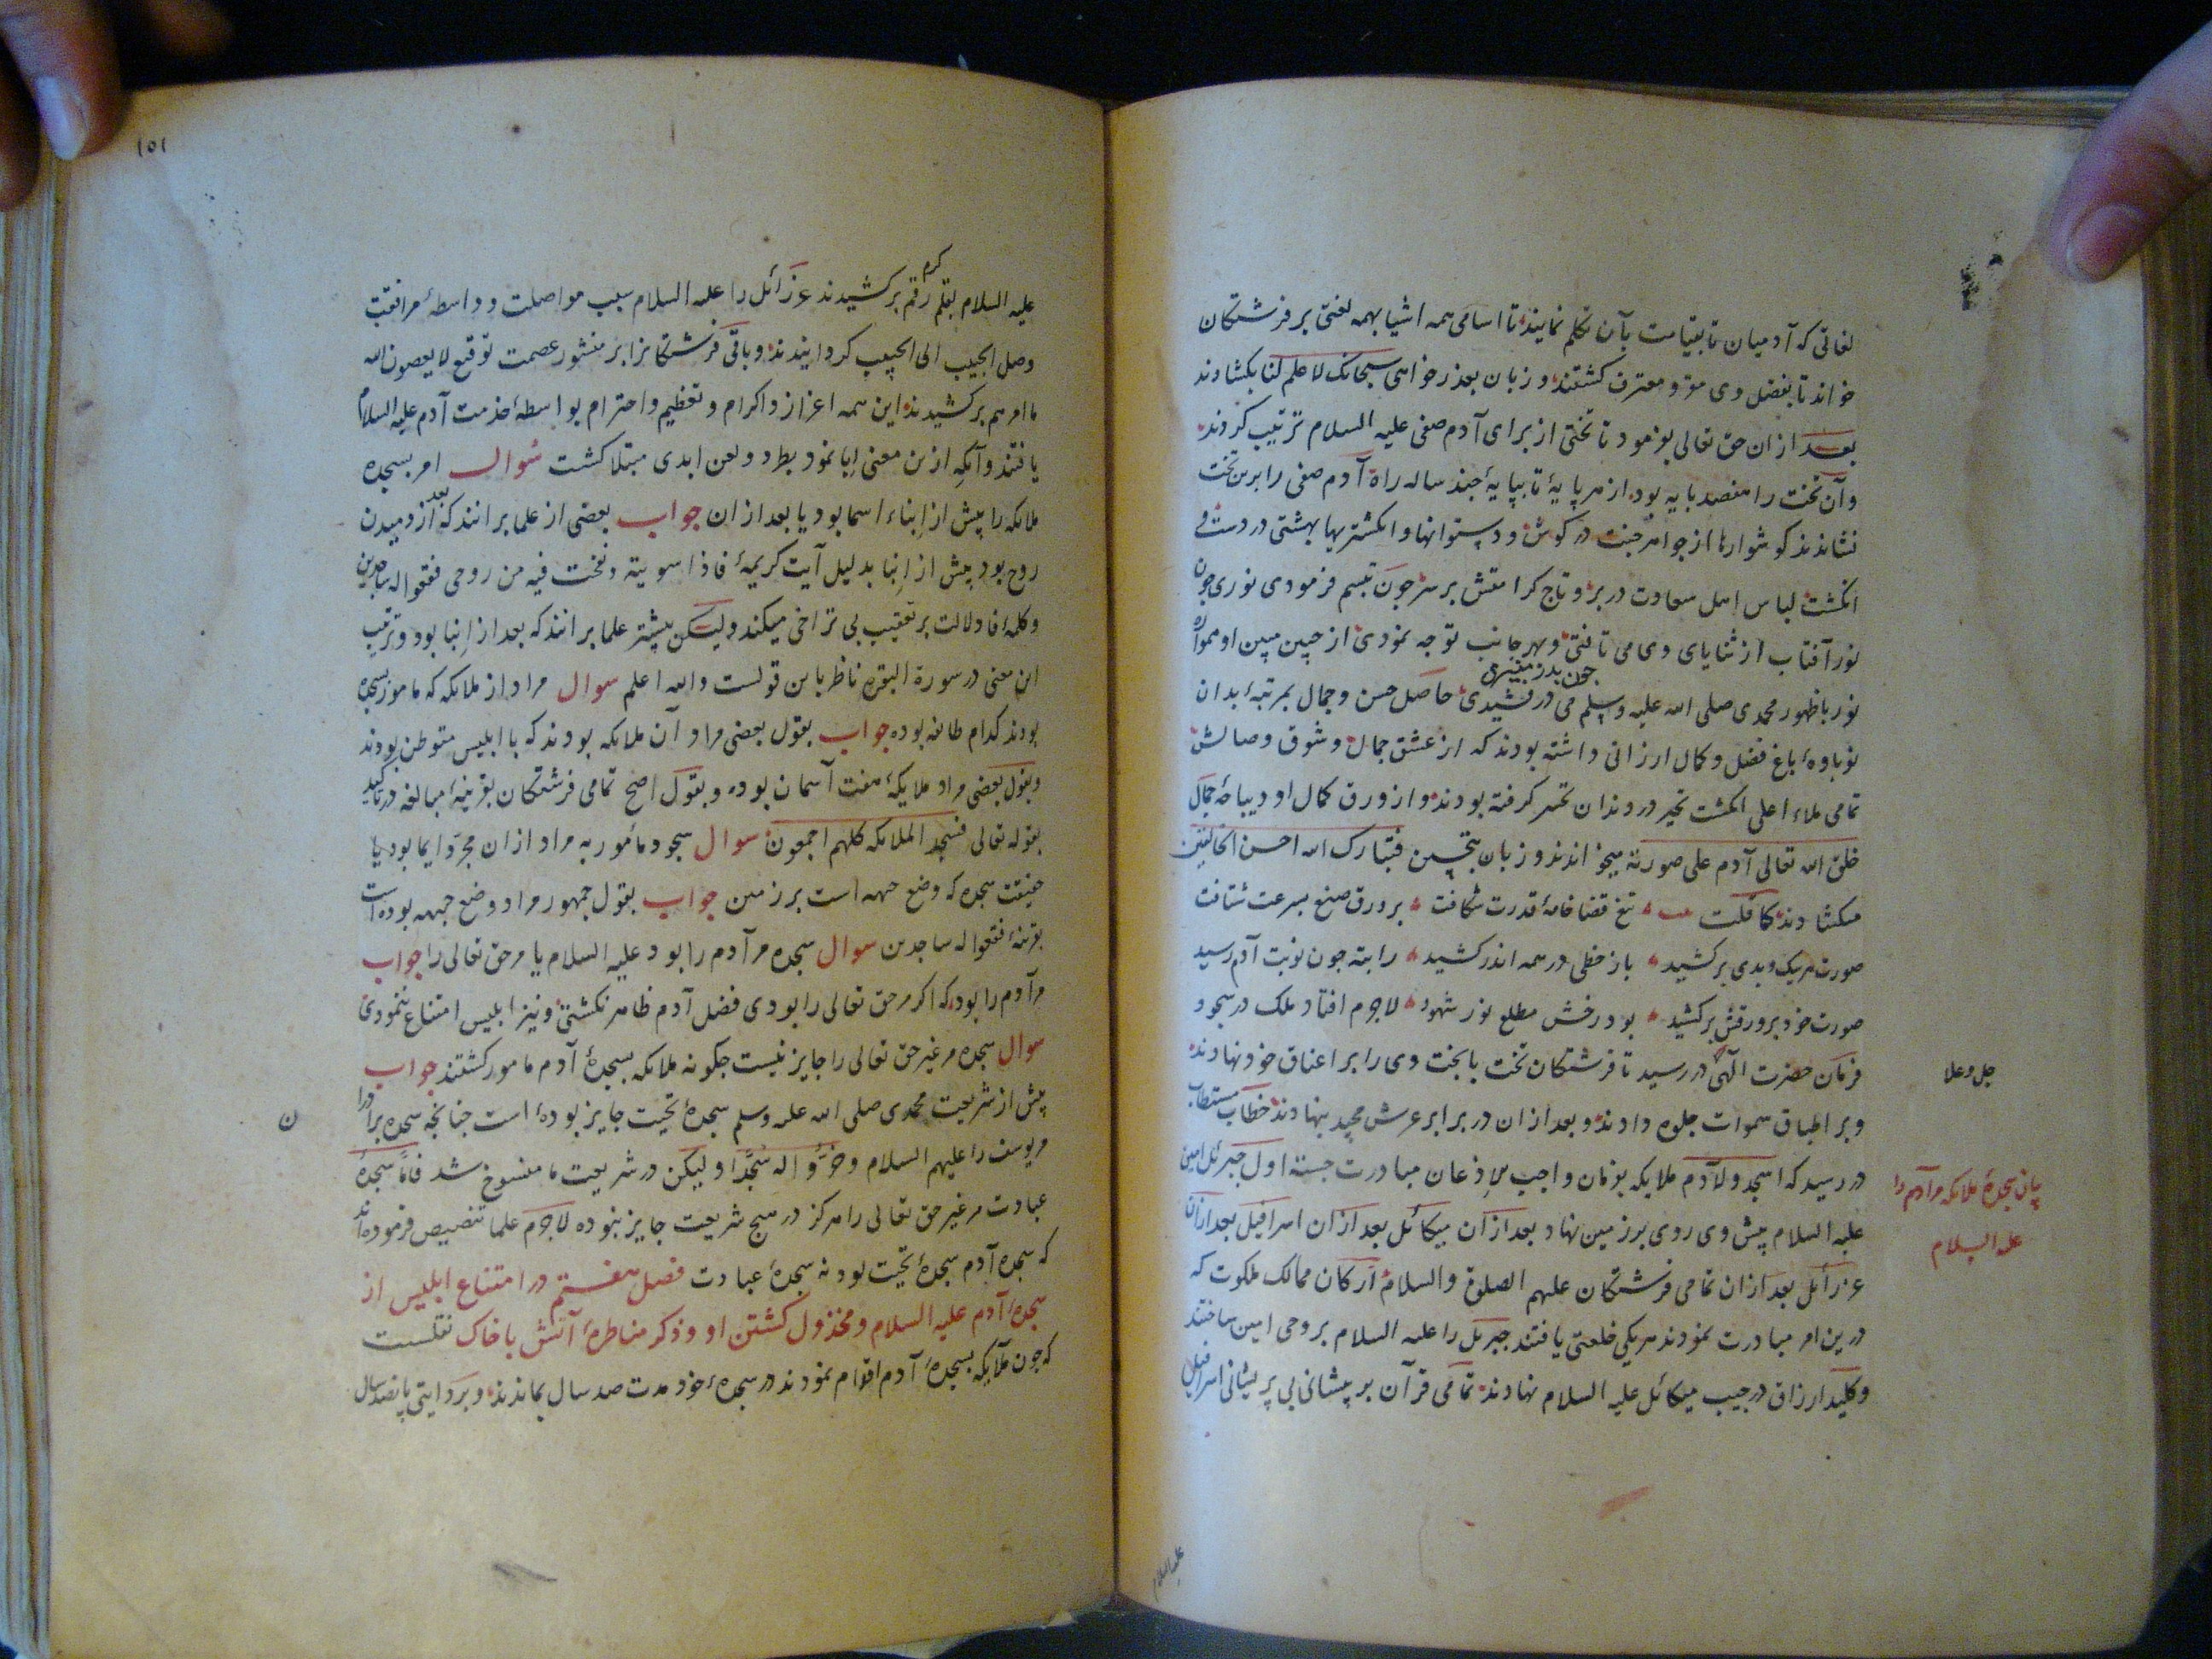 لغاتی که آدمیان تا بقیامت بآن تکلم نمایند تا اسامی همه اشیا بهمه لغتی بر فرشتکان
خواند تا بفضل وی مقر و معترف کشتند و زبان بعذرخواهی سبحانک لا علم لنا بکشادند
بعد از ان حق تعالی بفرمود تا تختی از برای آدم صفی علیه السلام ترتیب کردند
وآن تخت را هفصد پایه بود از هر پایهٔ تا بپایهٔ چند ساله راه آدم صفی را برین تخت
نشاندند کوشوارها از جواهر جنت در کوش و دستوانها و انکشتریهای بهشتی در دست و
انکشت لباس اهل سعادت در بر و تاج کرامتش بر سر چون تبسم فرمودی نوری چون
نور آفتاب از ثنایای وی می تافتی و بهر جانب توجه نمودی از جبین مبین او همواره
چون بدر منیری
نور با ظهور محمدی صلی الله علیه وسلم می درفشیدی حاصل حسن و جمال بمرتبهٔ بدان
نوباوهٔ باغ فضل و کمال ارزانی داشته بودند که از عشق جمال و شوق وصالش
تمامی ملاء اعلی انکشت تحیر در دندان تحسر کرفته بودند و از ورق کمال او دیباجهٔ جمال
خلق الله تعالی آدم علی صورته میخواندند و زبان بتحسین فتبارک الله احسن الخالقین
میکشادند کما قلت تیغ قضا خامهٔ قدرت شکافت بر ورق صنع بسرعت شتافت
صورت هر یک و بدی برکشید باز خطی در همه اندر کشید راسته چون نوبت آدم رسید
صورت خود بر ورقش برکشید بود رخش مطلع نور شهود لاجرم افتاد ملک در سجود
فرمان حضرت الهی در رسید تا فرشتکان تخت با بخت وی را بر اعناق خود نهادند
جل و علا
و بر اطباق سموات جلوه دادند و بعد از ان در برابر عرش مجید بنهادند خطاب مستطاب
در رسید که اسجدوا لآدم ملایکه بفرمان واجب الاذعان مبادرت جسته اول جبرئل امین
بیان سجدهٔ ملایکه مر آدم را
علیه السلام
علیه السلام پیش وی روی بر زمین نهاد بعد از ان میکائل بعد از ان اسرافیل بعد از ان
عزرائل بعد از ان تمامی فرشتکان علیهم الصلوة والسلام ارکان ممالک ملکوت که
درین امر مبادرت نمودند هر یکی خلعتی یافتند جبرئل را علیه السلام بر وحی امین ساختند
و کلید ارزاق در جیب میکائل علیه السلام نهادند تمامی قرآن بر پیشانی بی پریشانی اسرافیل
علیه السلام
۱۵۱
علیه السلام بقلم کرم رقم برکشیدند عزرائل را علیه السلام سبب مواصلت و واسطهٔ مرافقت
وصل الحبیب الی الحبیب کردانیدند و باقی فرشتکانرا بر منشور عصمت توقیع لا یعصون الله
ما امرهم برکشیدند این همه اعزاز و اکرام و تعظیم و احترام بواسطهٔ خدمت آدم علیه السلام
یافتند و آنکه ازین معنی ابا نمود بطرد و لعن ابدی مبتلا کشت سوال امر بسجده
ملایکه را پیش از انباء اسما بود یا بعد از ان جواب بعضی از علما برانند که بعد از دمیدن
روح بود پیش از انبا بدلیل آیت کریمهٔ فاذا سویته ونفخت فیه من روحی فقعوا له ساجدین
و کلمهٔ فا دلالت بر تعقیب بی تراخی میکند ولیکن بیشتر علما برانند که بعد از انبا بود و ترتیب
این معنی در سورة البقره ناظر باین قولست والله اعلم سوال مراد از ملایکه که مامور بسجده
بودند کدام طایفه بوده جواب بقول بعضی مراد آن ملایکه بودند که با ابلیس متوطن بودند
و بقول بعضی مراد ملایکهٔ هفت آسمان بوده و بقول اصح تمامی فرشتکان بقرینهٔ مبالغه در تاکید
بقوله تعالی فسجد الملائکه کلهم اجمعون سوال سجود مأمور به مراد از ان مجرد ایما بود یا
حقیقت سجده که وضع جبهه است بر زمین جواب بقول جمهور مراد وضع جبهه بوده است
بقرینهٔ فقعوا له ساجدین سوال سجده مر آدم را بود علیه السلام یا مر حق تعالی را جواب
مر آدم را بود که اکر مر حق تعالی را بودی فضل آدم ظاهر نکشتی و نیز ابلیس امتناع ننمودی
سوال سجده مر غیر حق تعالی را جایز نیست چکونه ملایکه بسجدهٔ آدم مامور کشتند جواب
پیش از شریعت محمدی صلی الله علیه وسلم سجدهٔ تحیت جایز بوده است چنانچه سجده برادران
مر یوسف را علیهم السلام وخرّوا له سُجَّدًا ولیکن در شریعت ما منسوخ شد فامّا سجدهٔ
عبادت مر غیر حق تعالی را هرکز در هیچ شریعت جایز نبوده لاجرم علما تنصیص فرموده‌اند
که سجده آدم سجدهٔ تحیت بود نه سجدهٔ عبادت فصل هفتم در امتناع ابلیس از
سجدهٔ آدم علیه السلام و مخذول کشتن او و ذکر مناظرهٔ آتش با خاک نقلست
که چون ملایکه بسجدهٔ آدم اقدام نمودند در سجدهٔ خود مدت صد سال بماندند و بروایتی پانصد سال